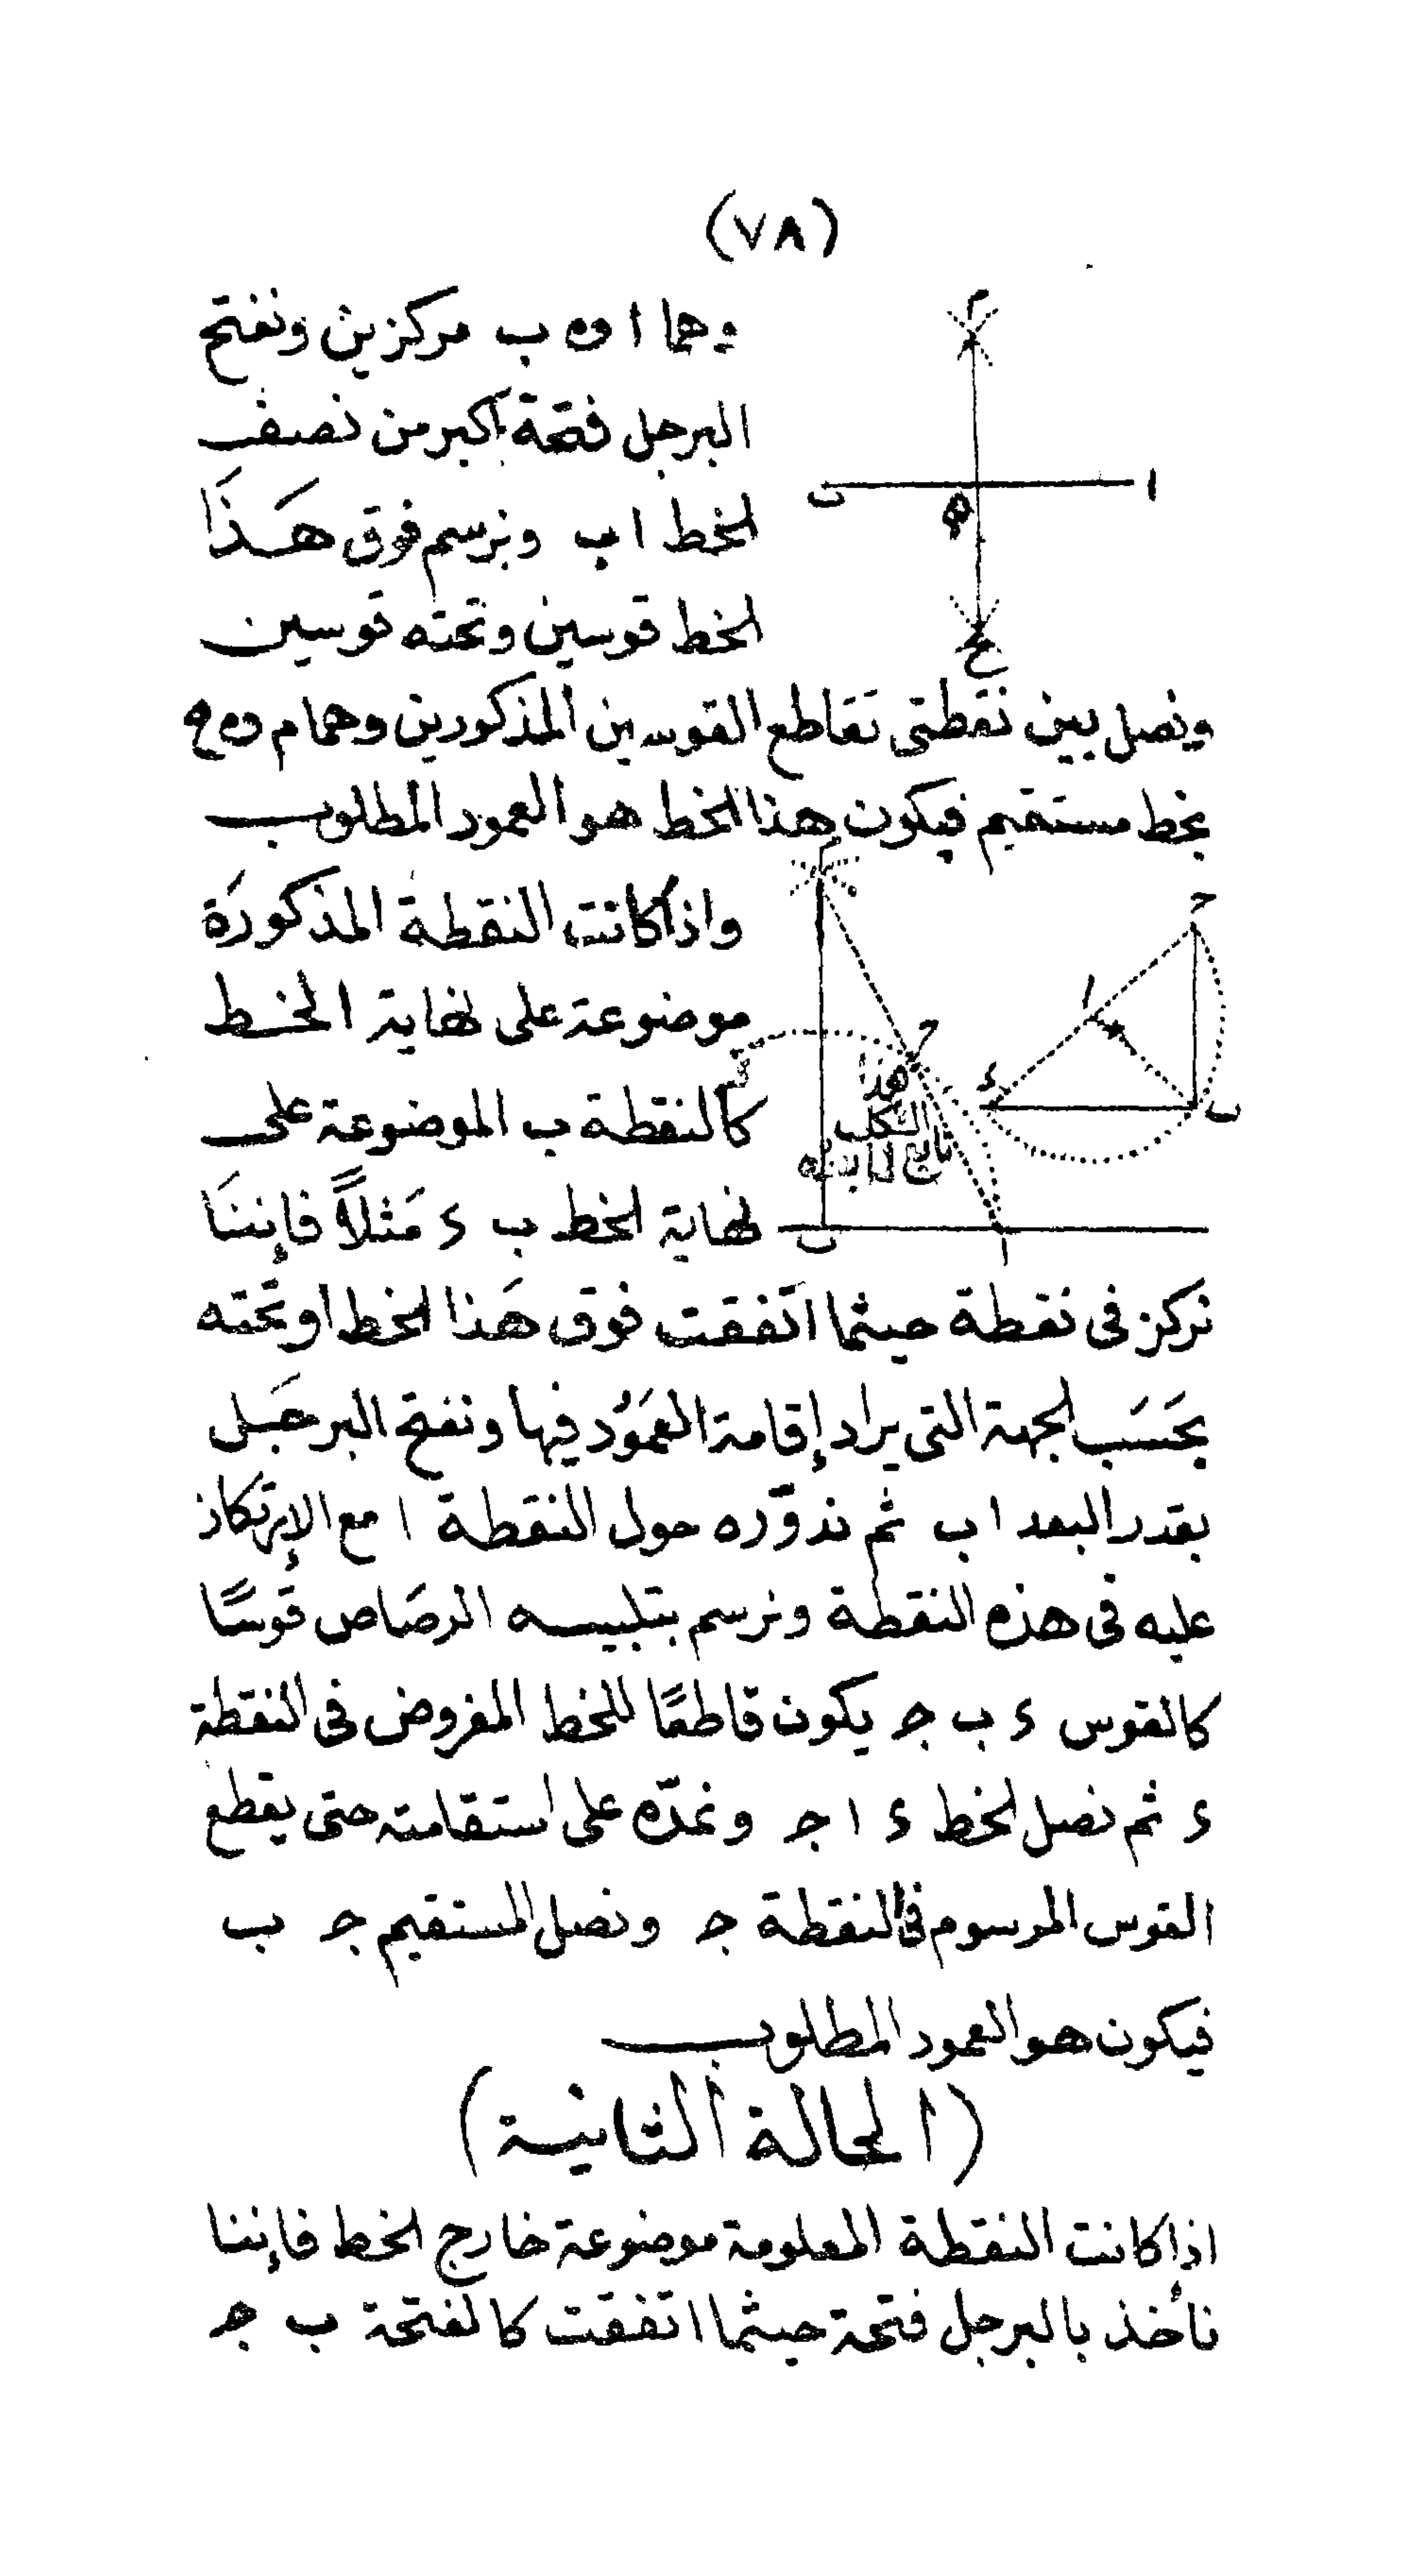 (٧٨)
وهما ا و ه ب مركزين ونفتح
البرجل فتحة اكبر من نصف
الخط ا ب ونرسم فوق هَذَا
الخط قوسين وتحته قوسين
ونصل بين نقطتى تقاطع القوسين المذكورين وهما م و ه ع
بخط مستقيم فيكون هذا الخط هو العمود المطلوب
واذا كانت النقطة المذكورَة
موضوعة على نهاية الخط
كالنقطة ب الموضوعة على
نهاية الخط ب ء مَثلاً فإننَا
نركز فى نقطة حيثما اتفقت فوق هَذا الخط او تحته
بحَسَب الجهة التى يراد إقامة العَمَوُد فيها ونفتح البرجَل
بقدر البعد ا ب ثم ندوّره حول النقطة ا مع الإرتكاز
عليه فى هذه النقطة ونرسم بتلبيسه الرصَاص قوسًا
كالقوس ء ب جـ يكون قاطعًا للخط المفروض فى النقطة
ء ثم نصل الخط ء ا جـ ونمدّه على استقامته حتى يقطع
القوس المرسوم فى النقطة جـ ونصل المستقيم جـ ب
فيكون هو العمود المطلوب
(الحالة الثانية)
اذا كانت النقطة المعلومة موضوعة خارج الخط فإننا
نأخذ بالبرجل فتحة حيثما اتفقت كالفتحة ب جـ
م
ا
ب
ه
ع
م
ح
هذا
الشكل
تابع لما بعده
ب
ا
ح
ا
ء
ب